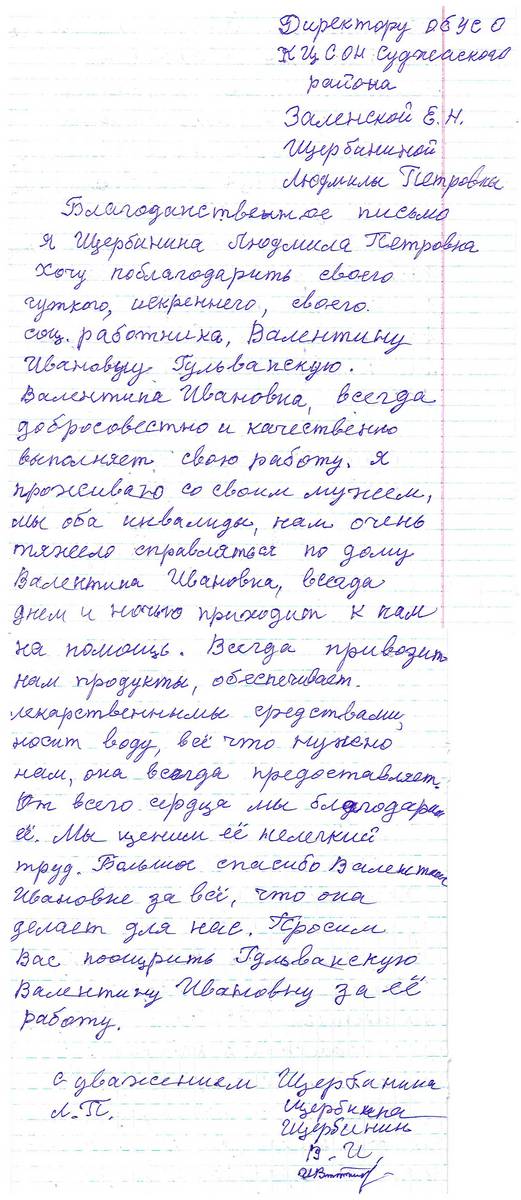 Директору ОБУСО
КЦСОН Суджанского
района
Заленской Е.Н.
Щербининой
Людмилы Петровна
Благодарственное письмо
Я Щербинина Людмила Петровна
Хочу поблагодарить своего
чуткого, искреннего, своего.
соц. работника, Валентину
Ивановну Гульванскую.
Валентина Ивановна, всегда
добросовестно и качественно
выполняет свою работу. Я
проживаю со своим мужем,
мы оба инвалиды, нам очень
тяжело справляться по дому
Валентина Ивановна, всегда
днем и ночью приходит к нам
на помощь. Всегда привозит
нам продукты, обеспечивает.
лекарственными средствами,
носит воду, всё что нужно
нам, она всегда предоставляет.
От всего сердца мы благодарим
её. Мы ценим её нелегкий
труд. Большое спасибо Валентине
Ивановне за всё, что она
делает для нас. Просим
Вас поощрить Гульванскую
Валентину Ивановну за её
работу.
С уважением Щербинина
Л.П.
Щербинина
Щербинин
В.И.